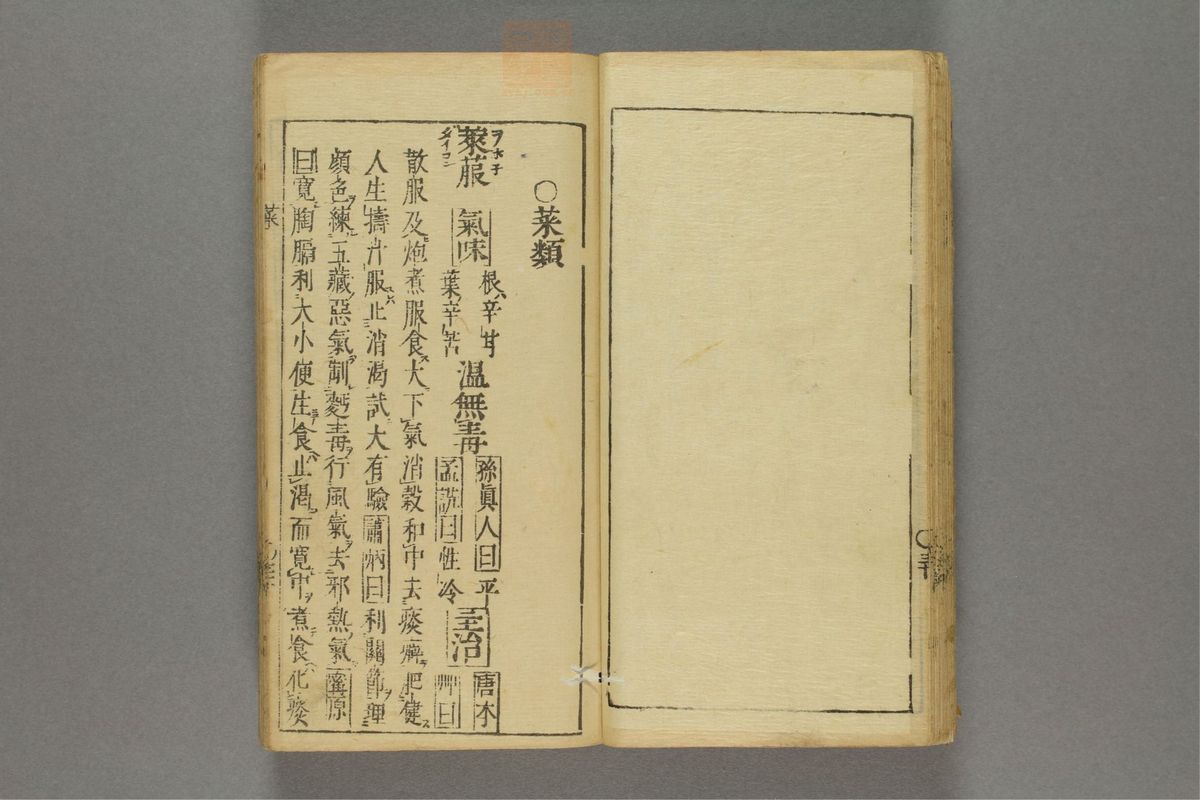 〇菜類
萊菔 氣味 根辛甘 葉辛苦 溫無毒 孫眞人曰平 孟詵曰性冷 主治 唐本艸曰
ヲホネ
ダイコン
散服及炮煮服食大下氣消穀和中去痰癖肥健
人生擣汁服止消渴試大有驗 蕭炳曰 利關節理
顏色練五藏惡氣制麪毒行風氣去邪熱氣 寗原
曰 寬胸膈利大小便生食止渴而寬中煮食化痰
菜
三十